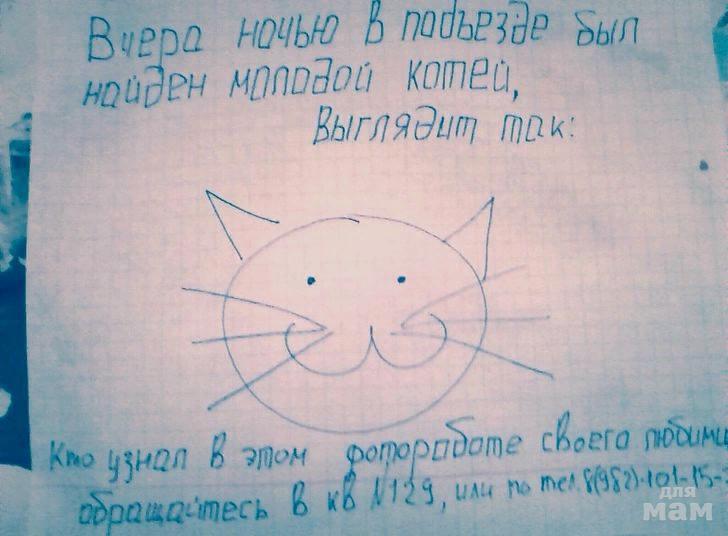 Вчера ночью в подъезде был
найден молодой котей,
Выглядит так:
Кто узнал в этом фотороботе своего любимц
обращайтесь в кв №129, или по тел. 8(982)-101-15-
для
мам